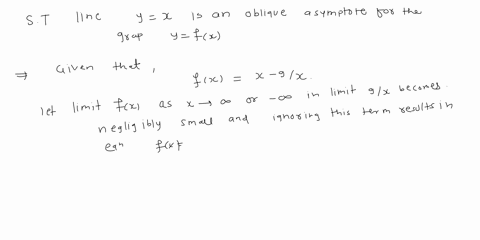 S.T line y = x is an oblique asymptote for the
grap y = f(x)
⇒ Given that,
f(x) = x - 9/x.
let limit f(x) as x → ∞ or -∞ in limit 9/x becomes
negligibly small and ignoring this term results in
eqn f(x)=